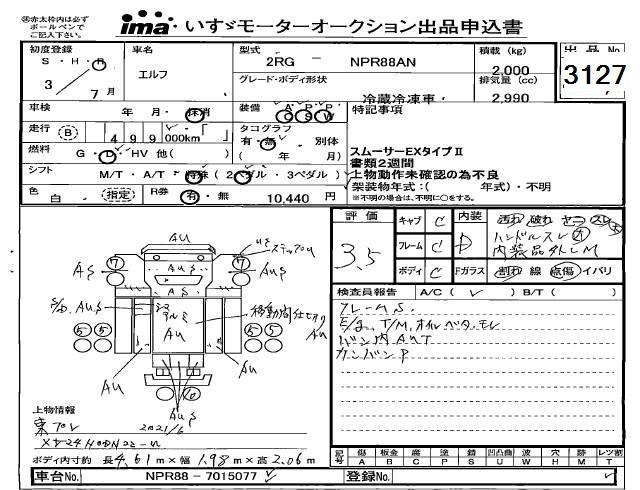 ※赤太枠内は必ず
ボールペンで
ご記入下さい。
ima いすゞモーターオークション出品申込書
初度登録
S・H・R
3 7月
車名
エルフ
型式
2RG － NPR88AN
積載 (kg)
2,000
出品 No
3127
グレード・ボディ形状
冷蔵冷凍車
排気量 (cc)
2,990
車検
年 月・抹消
装備
A・P・P
C S W
特記事項
走行 (B) 499000km
タコグラフ
有・無・別体
( 年 月)
スムーサーEXタイプⅡ
書類2週間
上物動作未確認の為不良
架装物年式：( 年式)・不明
※不明の場合は、不明に○をする。
燃料
G・D・HV 他( )
シフト
M/T・A/T・特殊 (2ペダル・3ペダル)
色
白 (指定)
R券
有・無 10,440 円
評価
3.5
キャブ C
フレーム C
ボディ C
内装
D
Fガラス
汚れ 破れ ヤニ スレ
ハンドルスレ
内装品外し M
割れ 線 点傷 イバリ
検査員報告 A/C( ✓ ) B/T( )
フレームS.
T/M,オイルベタ,モレ
バン内AUT
カンバンP
AU
ステップU
7 AS AUS 7 AUS
AS
AUS アルミ
AU AU
5 5 5 5
AU AU
AUS
6
上物情報
東プレ 2021/6
ボディ内寸約 長4.61m × 幅1.98m × 高2.06m
記号
傷 板金 歪 塗 錆 凹凸曲 波 穴 跡 レツ割
A B C P S U W H M T
車台No. NPR88－7015077
登録No.